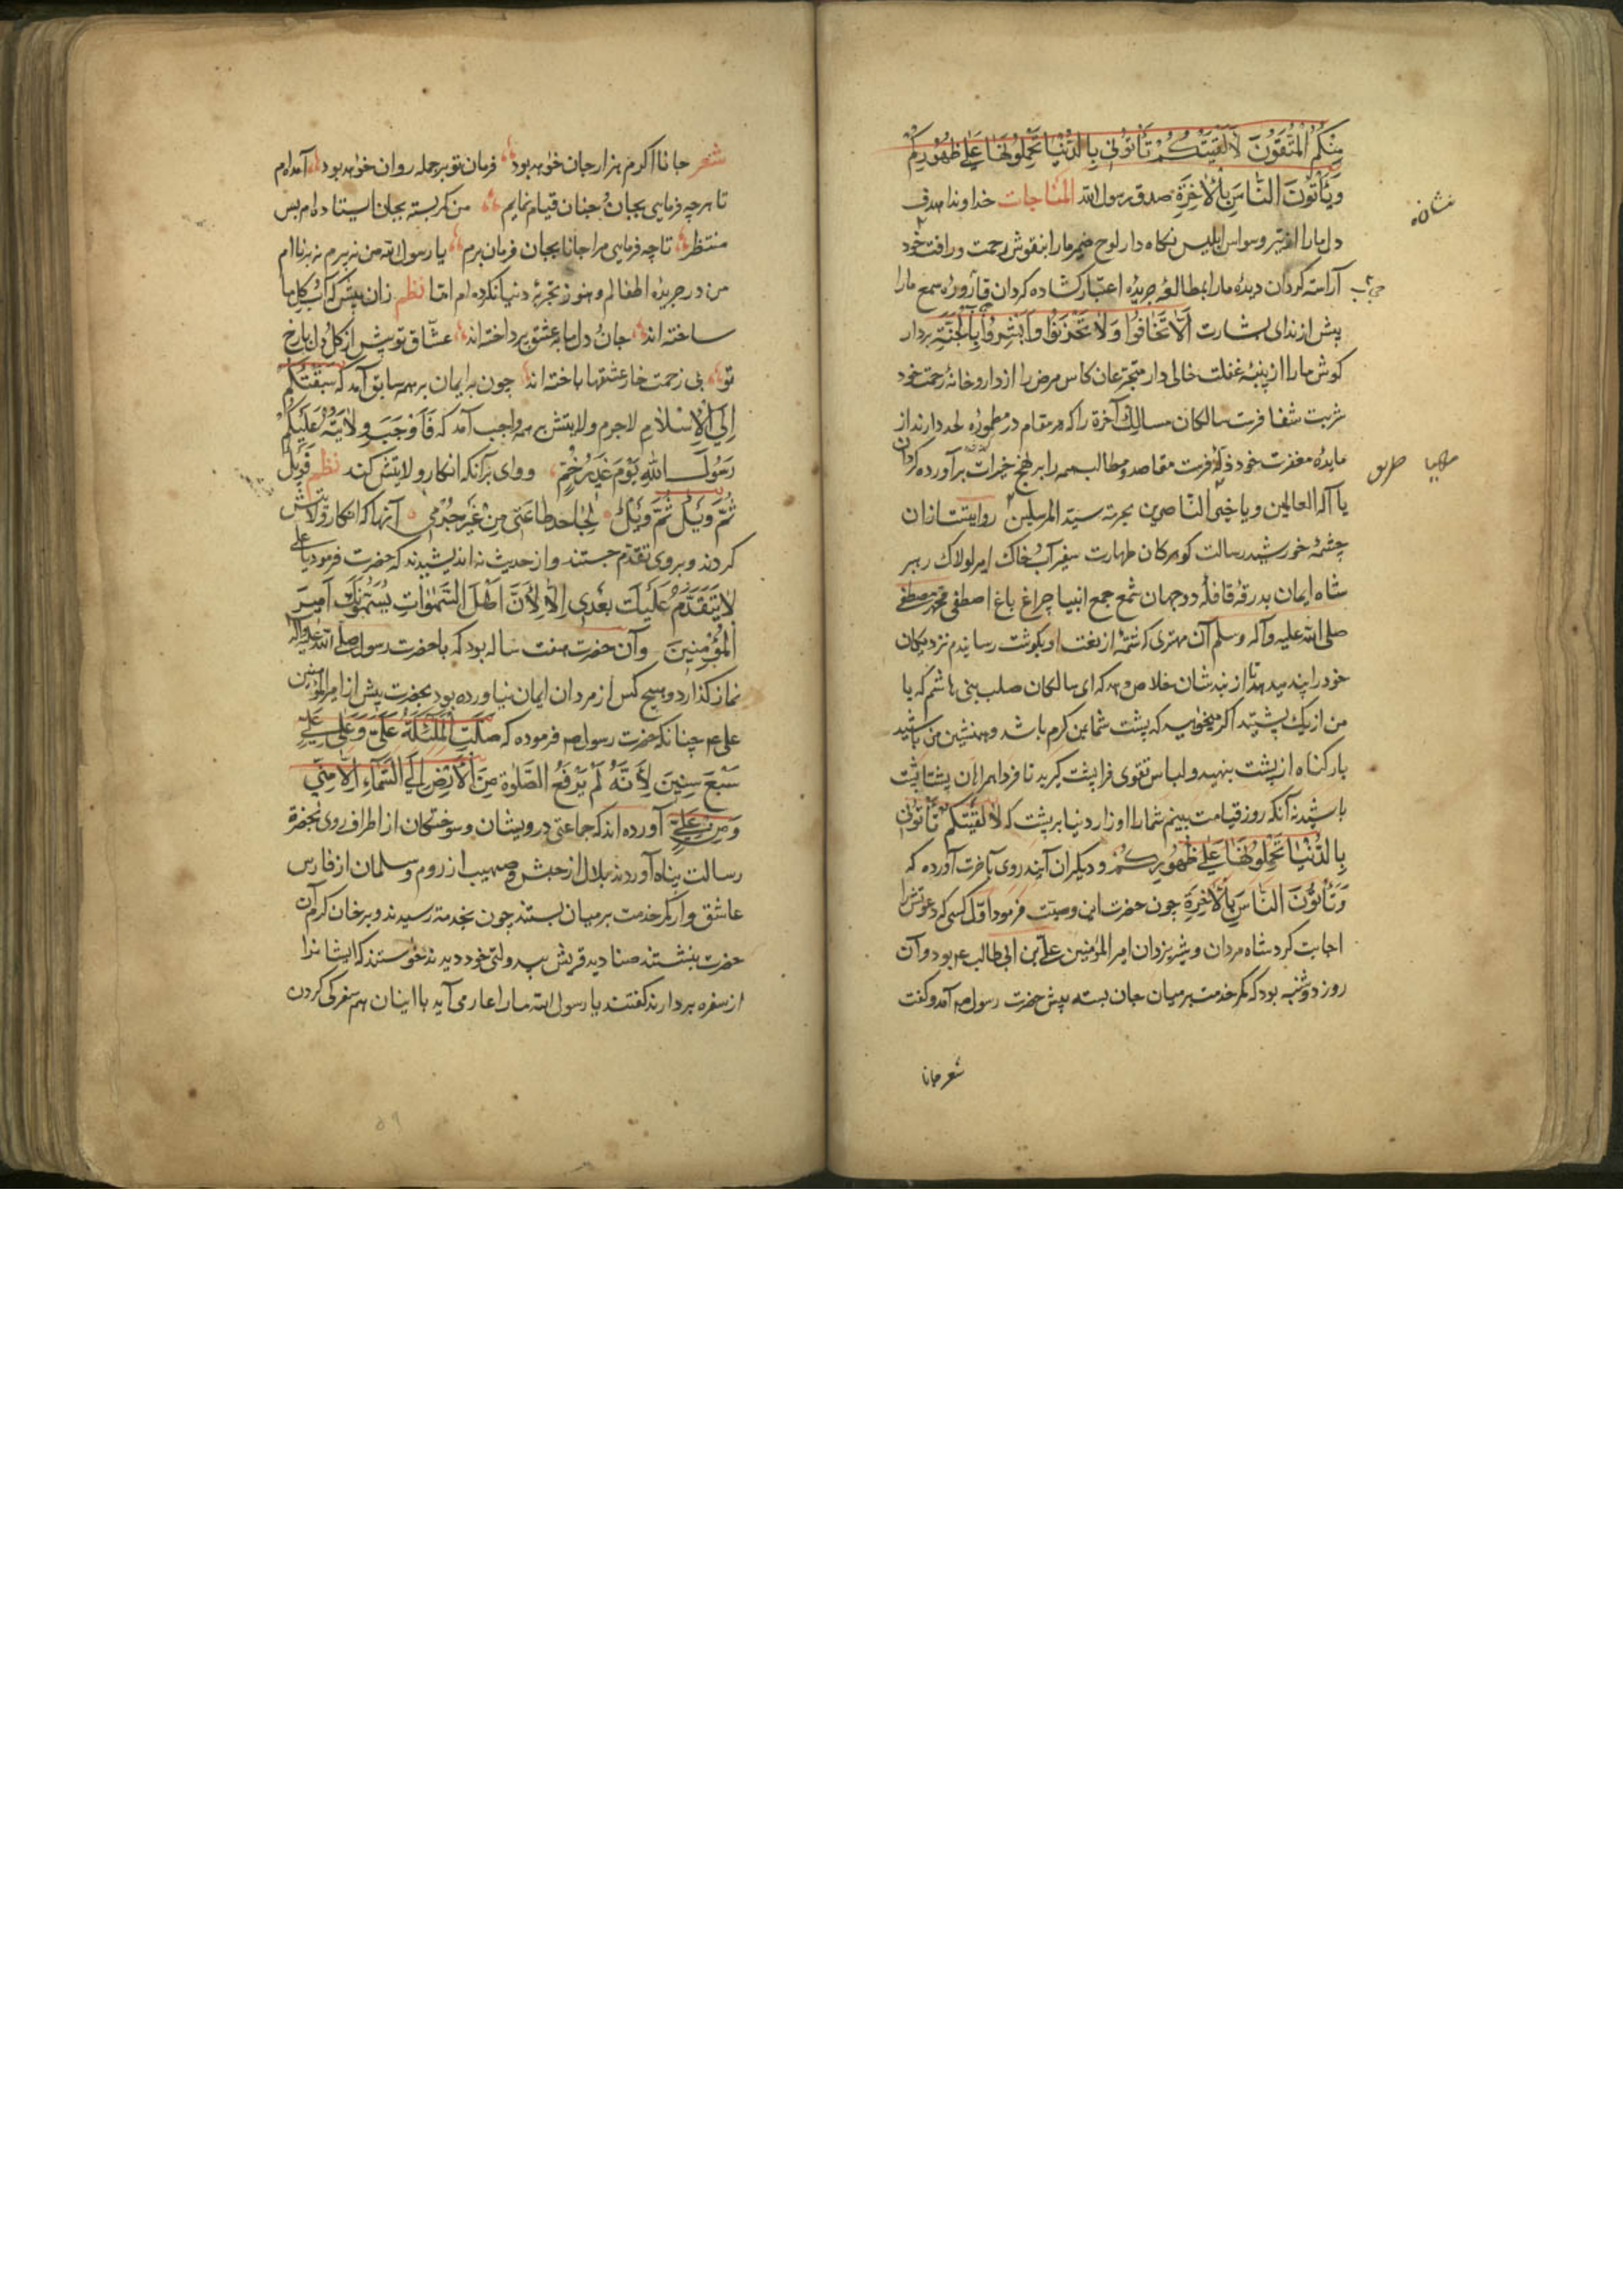 مِنْكُمُ الْمُتَّقُونَ لَا أَلْقَيَنَّكُمْ تَأْتُونِي بِالدُّنْيَا تَحْمِلُونَهَا عَلَى ظُهُورِكُمْ
وَيَأْتُونَ النَّاسَ بِالْآخِرَةِ صدق رسول الله المناجات خداوندا هدف
دل ما را از تیر وسواس ابلیس نگاه دار لوح ضمیر ما را بنقوش رحمت و رأفت خود
آراسته گردان دیدۀ ما را بمطالعۀ جریدۀ اعتبار گشاده گردان قارورۀ سمع ما را
پیش از ندای بشارت أَلَّا تَخَافُوا وَلَا تَحْزَنُوا وَأَبْشِرُوا بِالْجَنَّةِ بردار
گوش ما را از پنبۀ غفلت خالی دار متجرعان کاس مرض را از داروخانۀ رحمت خود
شربت شفا فرست سالکان مسالک آخرة را که در مقام در مطمورۀ لحد دارند از
مایدۀ مغفرت خود ذلۀ فرست مقاصد و مطالب همه را بر نهج خیرات برآورده گردان
یا آله العالمین و یا خیر الناصرین بحرمة سید المرسلین روایتست از ان
چشمۀ خورشید رسالت گوهر کان طهارت سفیر آب و خاک امیر لولاک رهبر
شاه ایمان بدرقۀ قافلۀ دو جهان شمع جمع انبیا چراغ باغ اصطفی محمد مصطفی
صلی الله علیه وآله وسلم آن مهتری که شمۀ از نعت او بگوشت رسانیدم نزدیکان
خود را پند میدهد تا از بند شان خلاص دهد که ای سالکان صلب بنی هاشم که با
من از یک پشتید اگر میخواهید که پشت شما بمن گرم باشد و همنشین من باشید
بار گناه از پشت بنهید و لباس تقوی فرا پشت گیرید تا فردا همراهان پشتاپشت
باشید نه آنکه روز قیامت بینم شما را اوزار دنیا بر پشت که لَا أَلْقَيَنَّكُمْ تَأْتُونِي
بِالدُّنْيَا تَحْمِلُونَهَا عَلَى ظُهُورِكُمْ و دیگران آیند روی بآخرت آورده که
وَتَأْتُونَ النَّاسَ بِالْآخِرَةِ چون حضرت این وصیت فرمود اول کسی که دعوتش را
اجابت کرد شاه مردان و شیر یزدان امیر المؤمنین علی بن ابی طالب ع بود و آن
روز دوشنبه بود که کمر خدمت بر میان جان بسته پیش حضرت رسول ص آمد و گفت
شعر جانا
نشانه
مهیا طریق
شعر جانا اکرم هزار جان خواهد بود فرمان تو بر جمله روان خواهد بود آمده‌ام
تا هر چه فرمایی بجان و جنان قیام نمایم من کمر بسته بجان استاده‌ام بس
منتظر تا چه فرمایی مرا جانا بجان فرمان برم یا رسول الله من نه پیرم نه برناام
من در جریدۀ اطفالم و هنوز تجربۀ دنیا نکرده‌ام اما نظم زان پیش که آب و گل ما
ساخته‌اند جان و دل ما به عشق پرداخته‌اند عشاق تو پیش از گل و دل با رخ
تو بی زحمت خار عشقها باخته‌اند چون بایمان بر همه سابق آمد که سَبَقْتُكُمْ
إِلَى الْإِسْلَامِ لاجرم ولایتش بر همه واجب آمد که فَأَوْجَبَ وِلَايَتَهُ عَلَيْكُمْ
رَسُولُ اللهِ يَوْمَ غَدِيرِ خُمٍّ و وای بر آنکه انکار ولایتش کند نظم فَوَيْلٌ
ثُمَّ وَيْلٌ ثُمَّ وَيْلٌ لِجَاحِدِ طَاعَتِي مِنْ غَيْرِ جُرْمِي آنها که انکار ولایتش
کردند و بروی تقدم جستند و از حدیث نه اندیشیدند که حضرت فرمود یا علی
لَا يَتَقَدَّمُ عَلَيْكَ بَعْدِي إِلَّا لِأَنَّ أَهْلَ السَّمٰوَاتِ يُسَمُّونَكَ أَمِيرَ
الْمُؤْمِنِينَ و آن حضرت هفت ساله بود که با حضرت رسول صلی الله علیه وآله
نماز گذارد و هیچ کس از مردان ایمان نیاورده بود بحضرت پیش از امیر المؤمنین
علی ع چنانکه حضرت رسول ص فرموده که صَلَّتِ الْمَلٰئِكَةُ عَلَيَّ وَعَلَى عَلِيٍّ
سَبْعَ سِنِينَ لِأَنَّهُ لَمْ يُرْفَعِ الصَّلٰوةُ مِنَ الْأَرْضِ إِلَى السَّمَاءِ إِلَّا مِنِّي
وَمِنْ عَلِيٍّ آورده‌اند که جماعتی درویشان و سوختگان از اطراف روی بحضرة
رسالت پناه آوردند بلال از حبش و صهیب از روم و سلمان از فارس
عاشق وار کمر خدمت بر میان بستند چون بخدمة رسیدند و بر خان کرم آن
حضرت بنشستند صنادید قریش بیدولتی خود دیدند خواستند که ایشانرا
از سفره بردارند گفتند یا رسول الله ما را عار می آید با اینان هم سفرگی کردن
۵۹